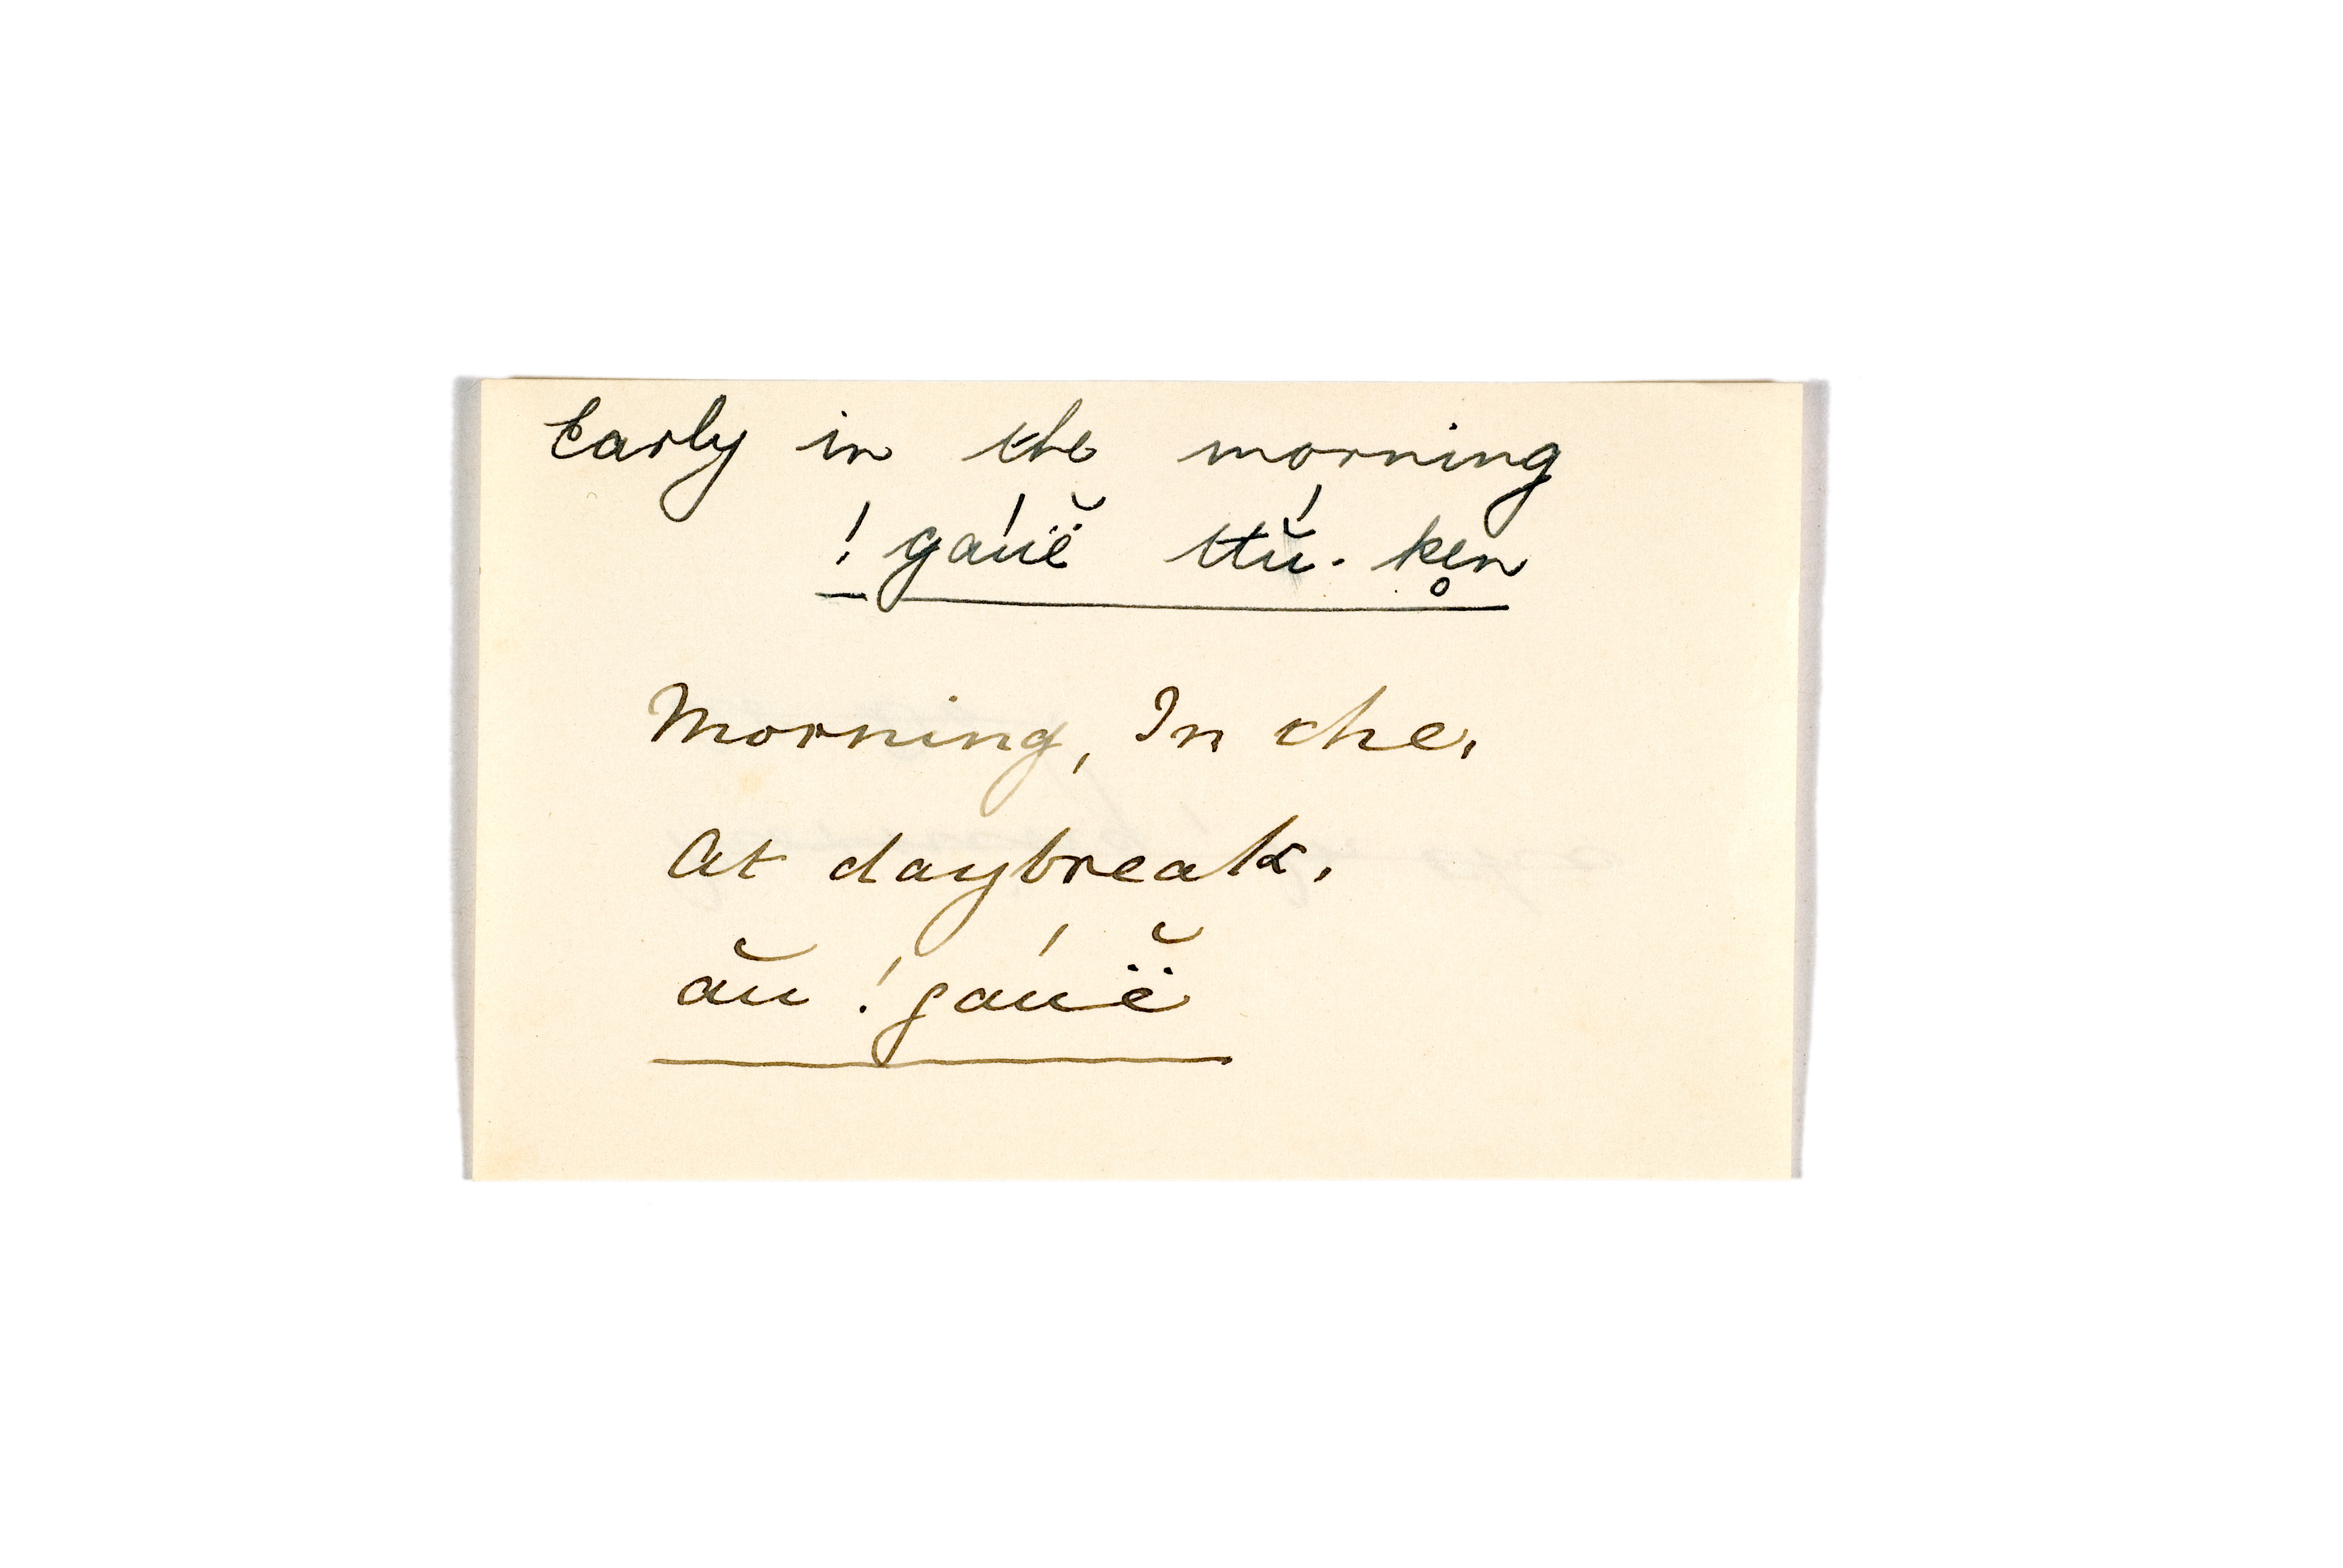 Early in the morning
!gáuë̆ ttŭ́. ken̥
Morning, In the.
At daybreak.
ău !gáuë̆